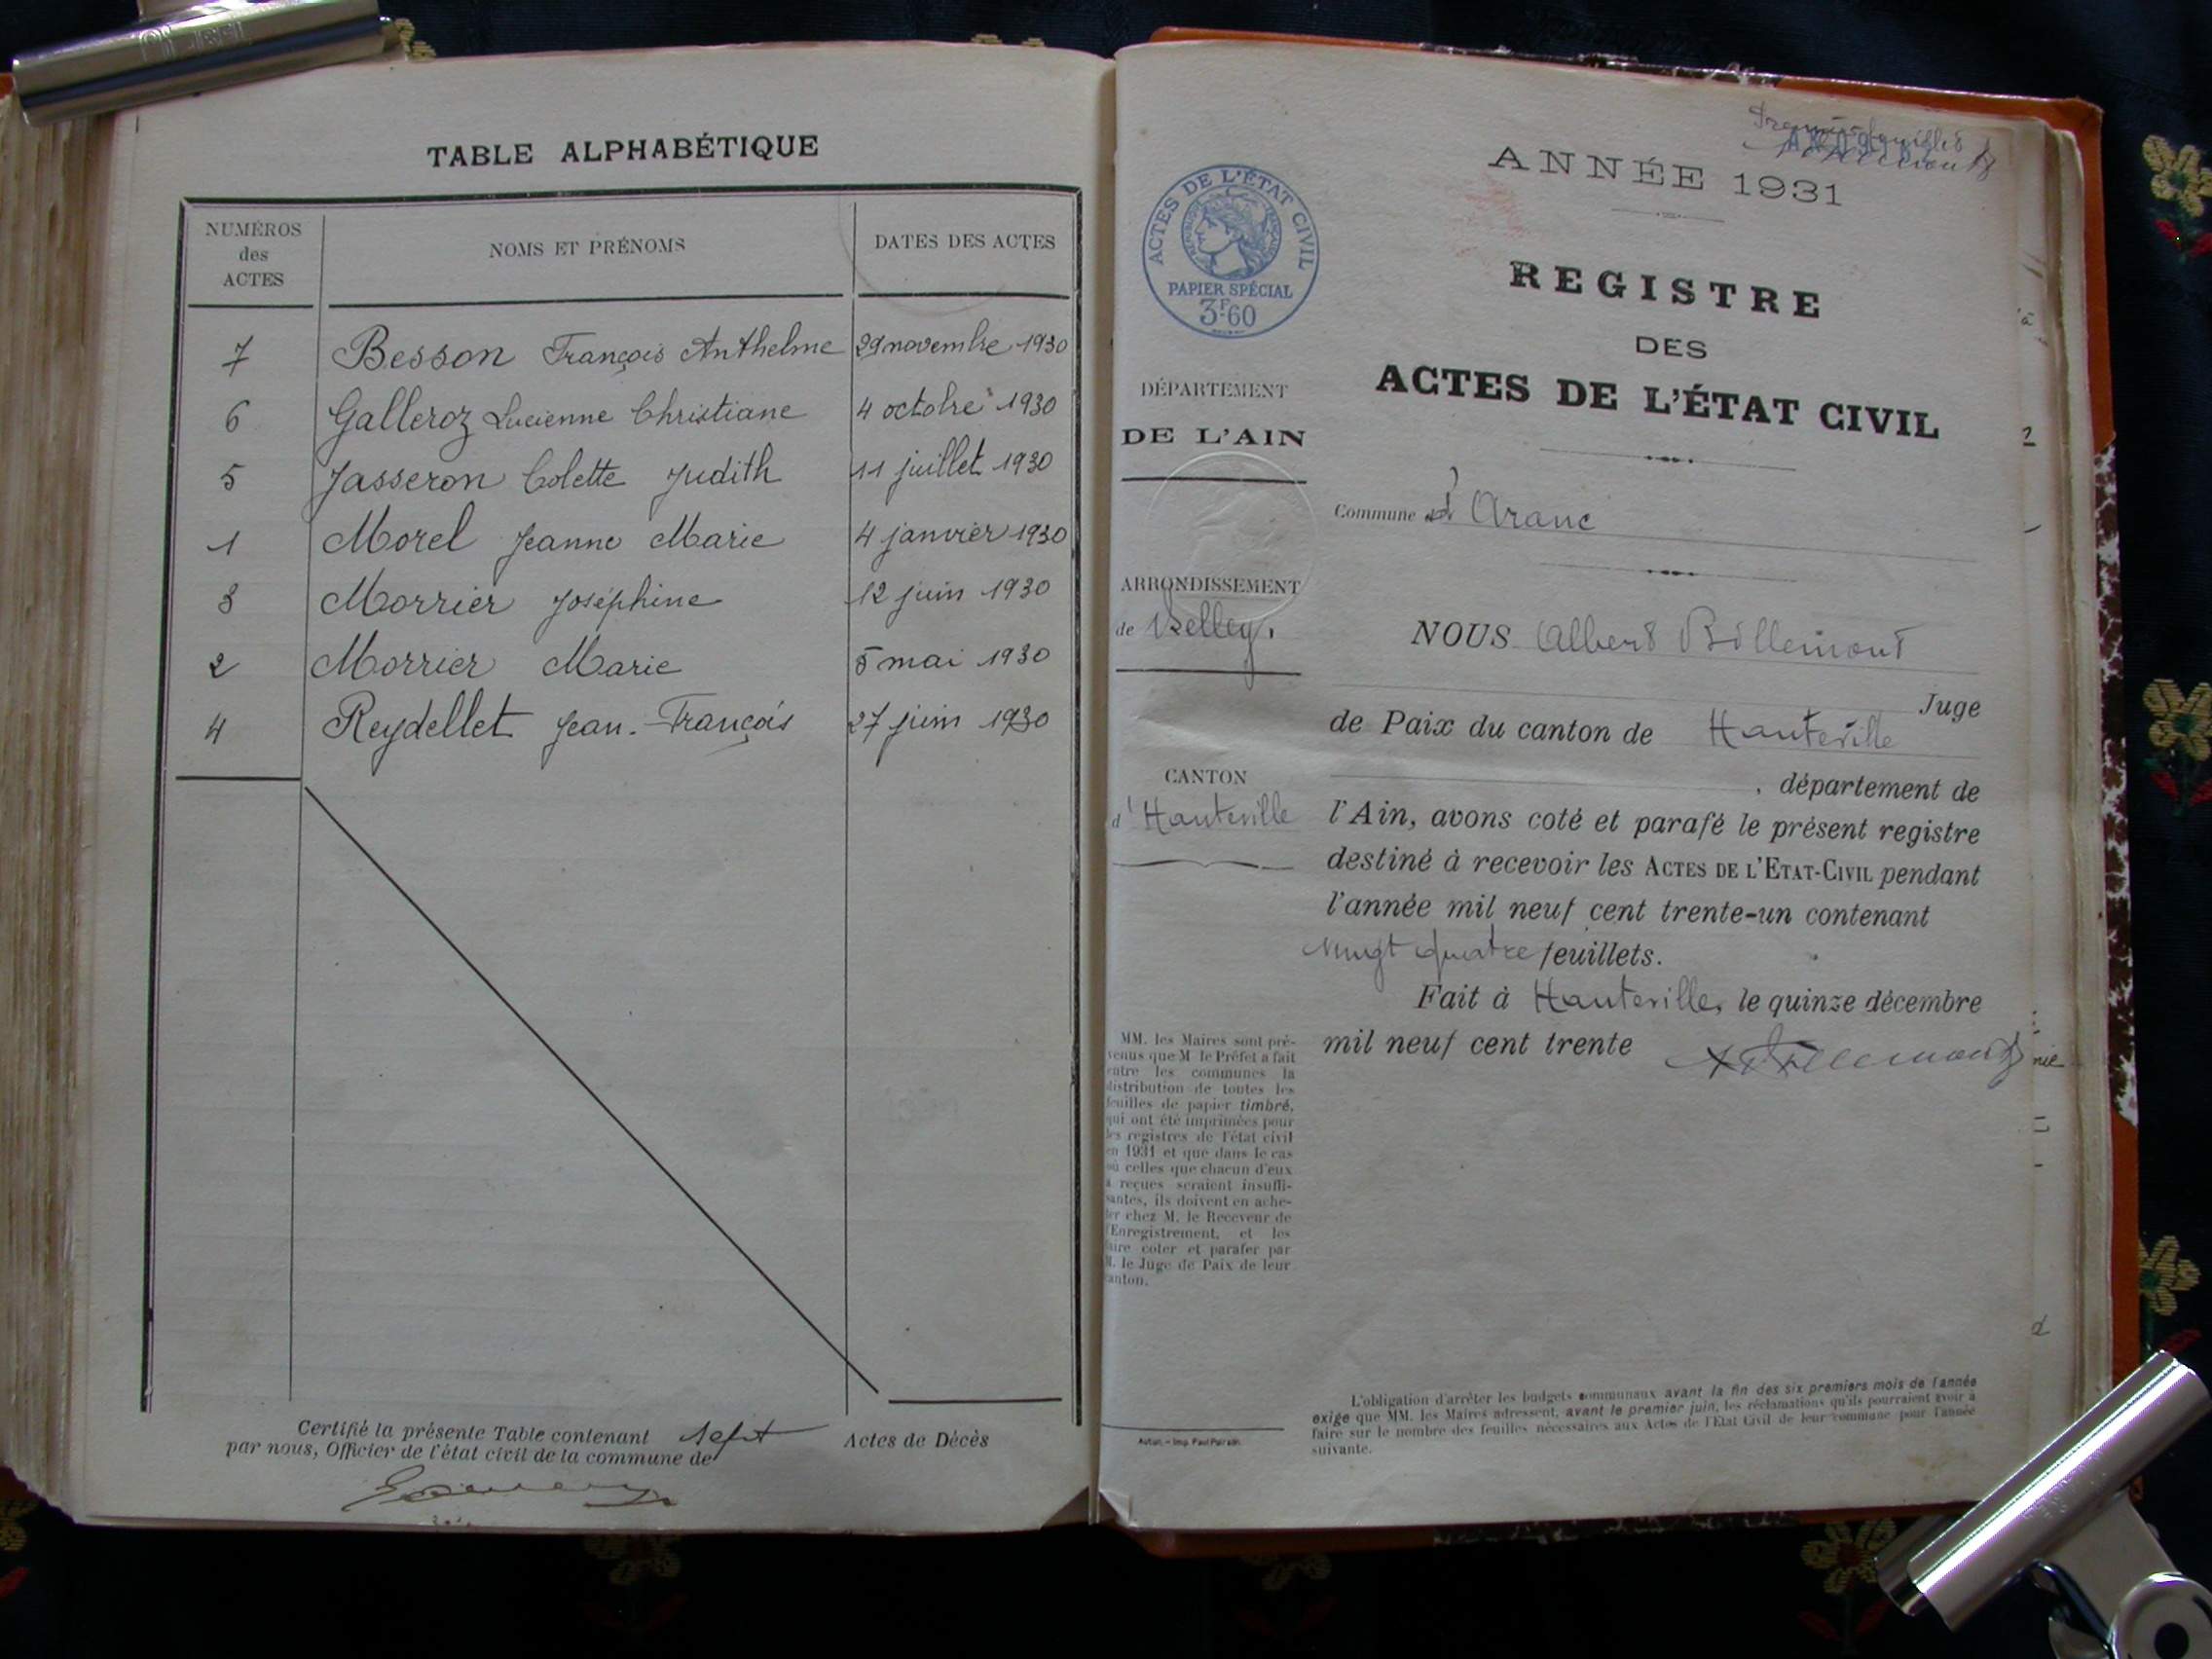 TABLE ALPHABÉTIQUE
NUMÉROS
des
ACTES
NOMS ET PRÉNOMS
DATES DES ACTES
7 Besson François Anthelme 29 novembre 1930
6 Galleroz Lucienne Christiane 4 octobre 1930
5 Jasseron Colette Judith 11 juillet 1930
1 Morel Jeanne Marie 4 janvier 1930
3 Morrier Joséphine 12 juin 1930
2 Morrier Marie 5 mai 1930
4 Reydellet Jean-François 27 juin 1930
Certifié la présente Table contenant sept Actes de Décès
par nous, Officier de l'état civil de la commune de
ANNÉE 1931
ACTES DE L'ÉTAT CIVIL
RÉPUBLIQUE FRANÇAISE
PAPIER SPÉCIAL
3F.60
REGISTRE
DES
ACTES DE L'ÉTAT CIVIL
DÉPARTEMENT
DE L'AIN
Commune d'Aranc
ARRONDISSEMENT
de Belley
NOUS Albert Billemont
Juge
de Paix du canton de Hauteville
CANTON
d'Hauteville
, département de
l'Ain, avons coté et parafé le présent registre
destiné à recevoir les ACTES DE L'ETAT-CIVIL pendant
l'année mil neuf cent trente-un contenant
vingt quatre feuillets.
Fait à Hauteville, le quinze décembre
mil neuf cent trente
MM. les Maires sont pré-
venus que M le Préfet a fait
entre les communes la
distribution de toutes les
feuilles de papier timbré,
qui ont été imprimées pour
les registres de l'état civil
en 1931 et que dans le cas
où celles que chacun d'eux
a reçues seraient insuffi-
santes, ils doivent en ache-
ter chez M. le Receveur de
l'Enregistrement, et les
faire coter et parafer par
M. le Juge de Paix de leur
canton.
L'obligation d'arrêter les budgets communaux avant la fin des six premiers mois de l'année
exige que MM. les Maires adressent, avant le premier juin, les réclamations qu'ils pourraient avoir à
faire sur le nombre des feuilles nécessaires aux Actes de l'Etat Civil de leur commune pour l'année
suivante.